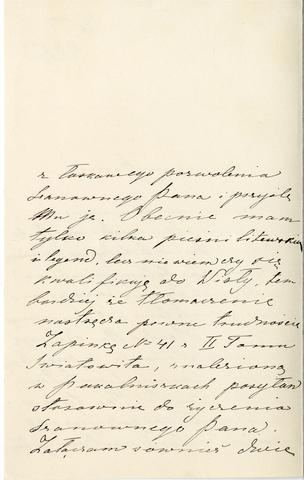 z łaskawego pozwolenia
Szanownego Pana i przyślę
Mu je. Obecnie mam
tylko kilka pieśni litewskich
i legend, lecz nie wiem czy się
kwalifikują do Wisły, tem
bardziej że tłomaczenie
nastręcza pewne trudności.
Zapinkę № 41 z II Tomu
Światowita, znalezioną
w Pakalniszkach posyłam
stosownie do życzenia
Szanownego Pana.
Załączam również dwie